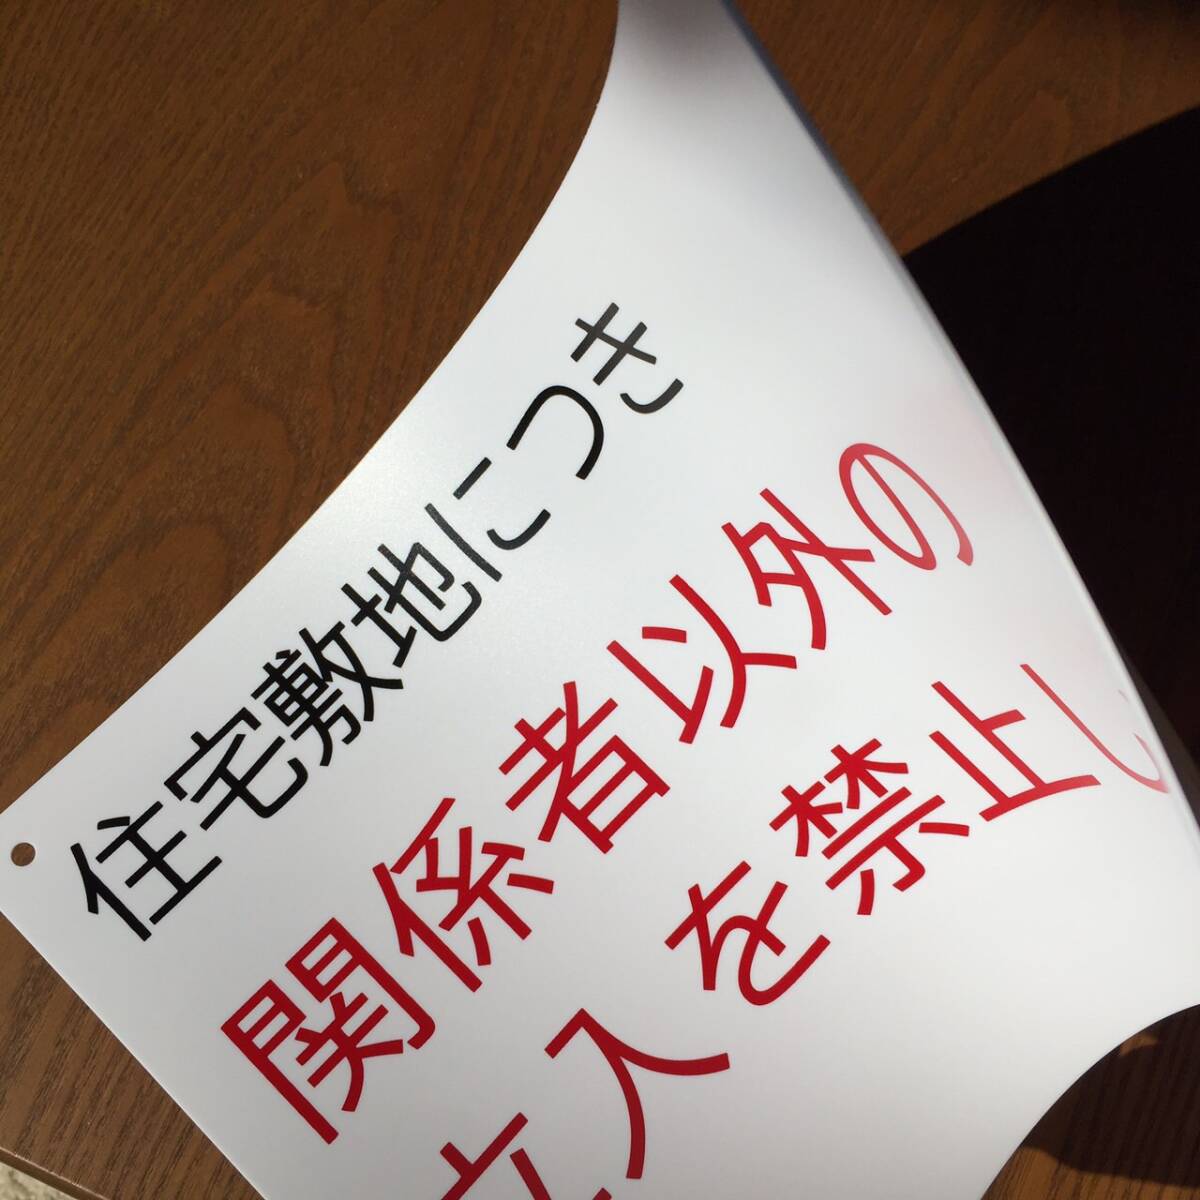 住宅敷地につき
関係者以外の
立入を禁止し